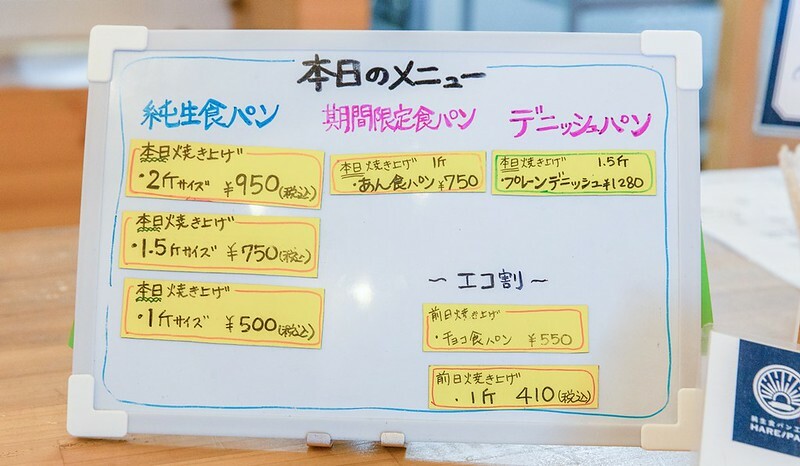 本日のメニュー
純生食パン
本日焼き上げ
・2斤サイズ ¥950(税込)
本日焼き上げ
・1.5斤サイズ ¥750(税込)
本日焼き上げ
・1斤サイズ ¥500(税込)
期間限定食パン
本日焼き上げ 1斤
・あん食パン ¥750
デニッシュパン
本日焼き上げ 1.5斤
・プレーンデニッシュ ¥1280
〜エコ割〜
前日焼き上げ
・チョコ食パン ¥550
前日焼き上げ
・1斤 410(税込)
純生食パン工
HARE/PA